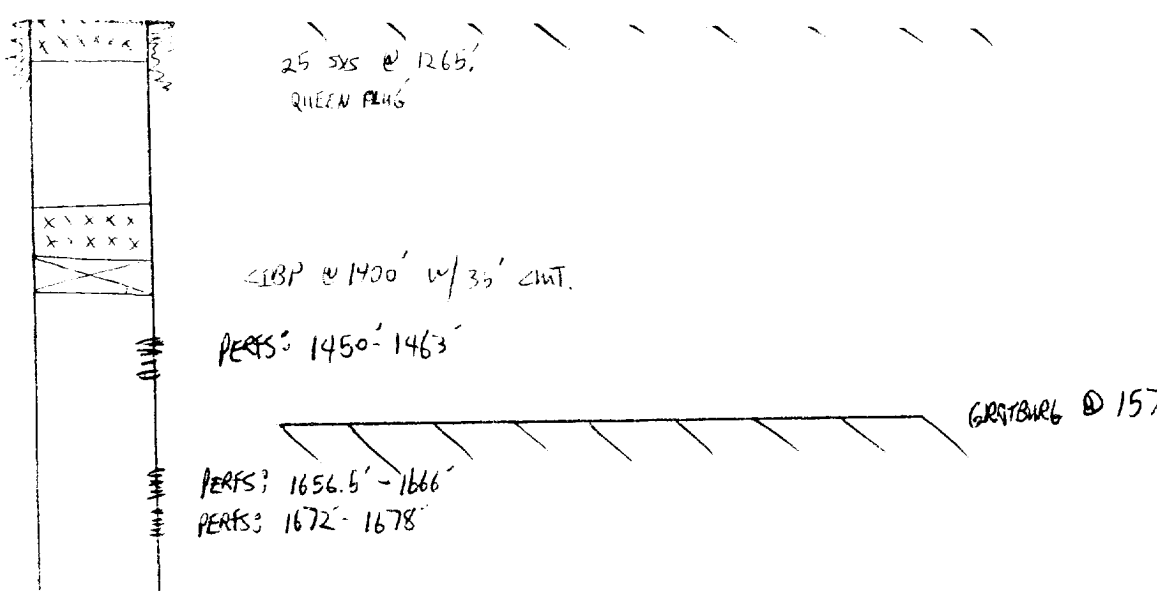 25 SXS @ 1265'
QUEEN PLUG
CIBP @ 1400' W/ 35' CMT.
PERFS: 1450'-1463'
GRAYBURG @ 157
PERFS: 1656.5'-1666'
PERFS: 1672'-1678'